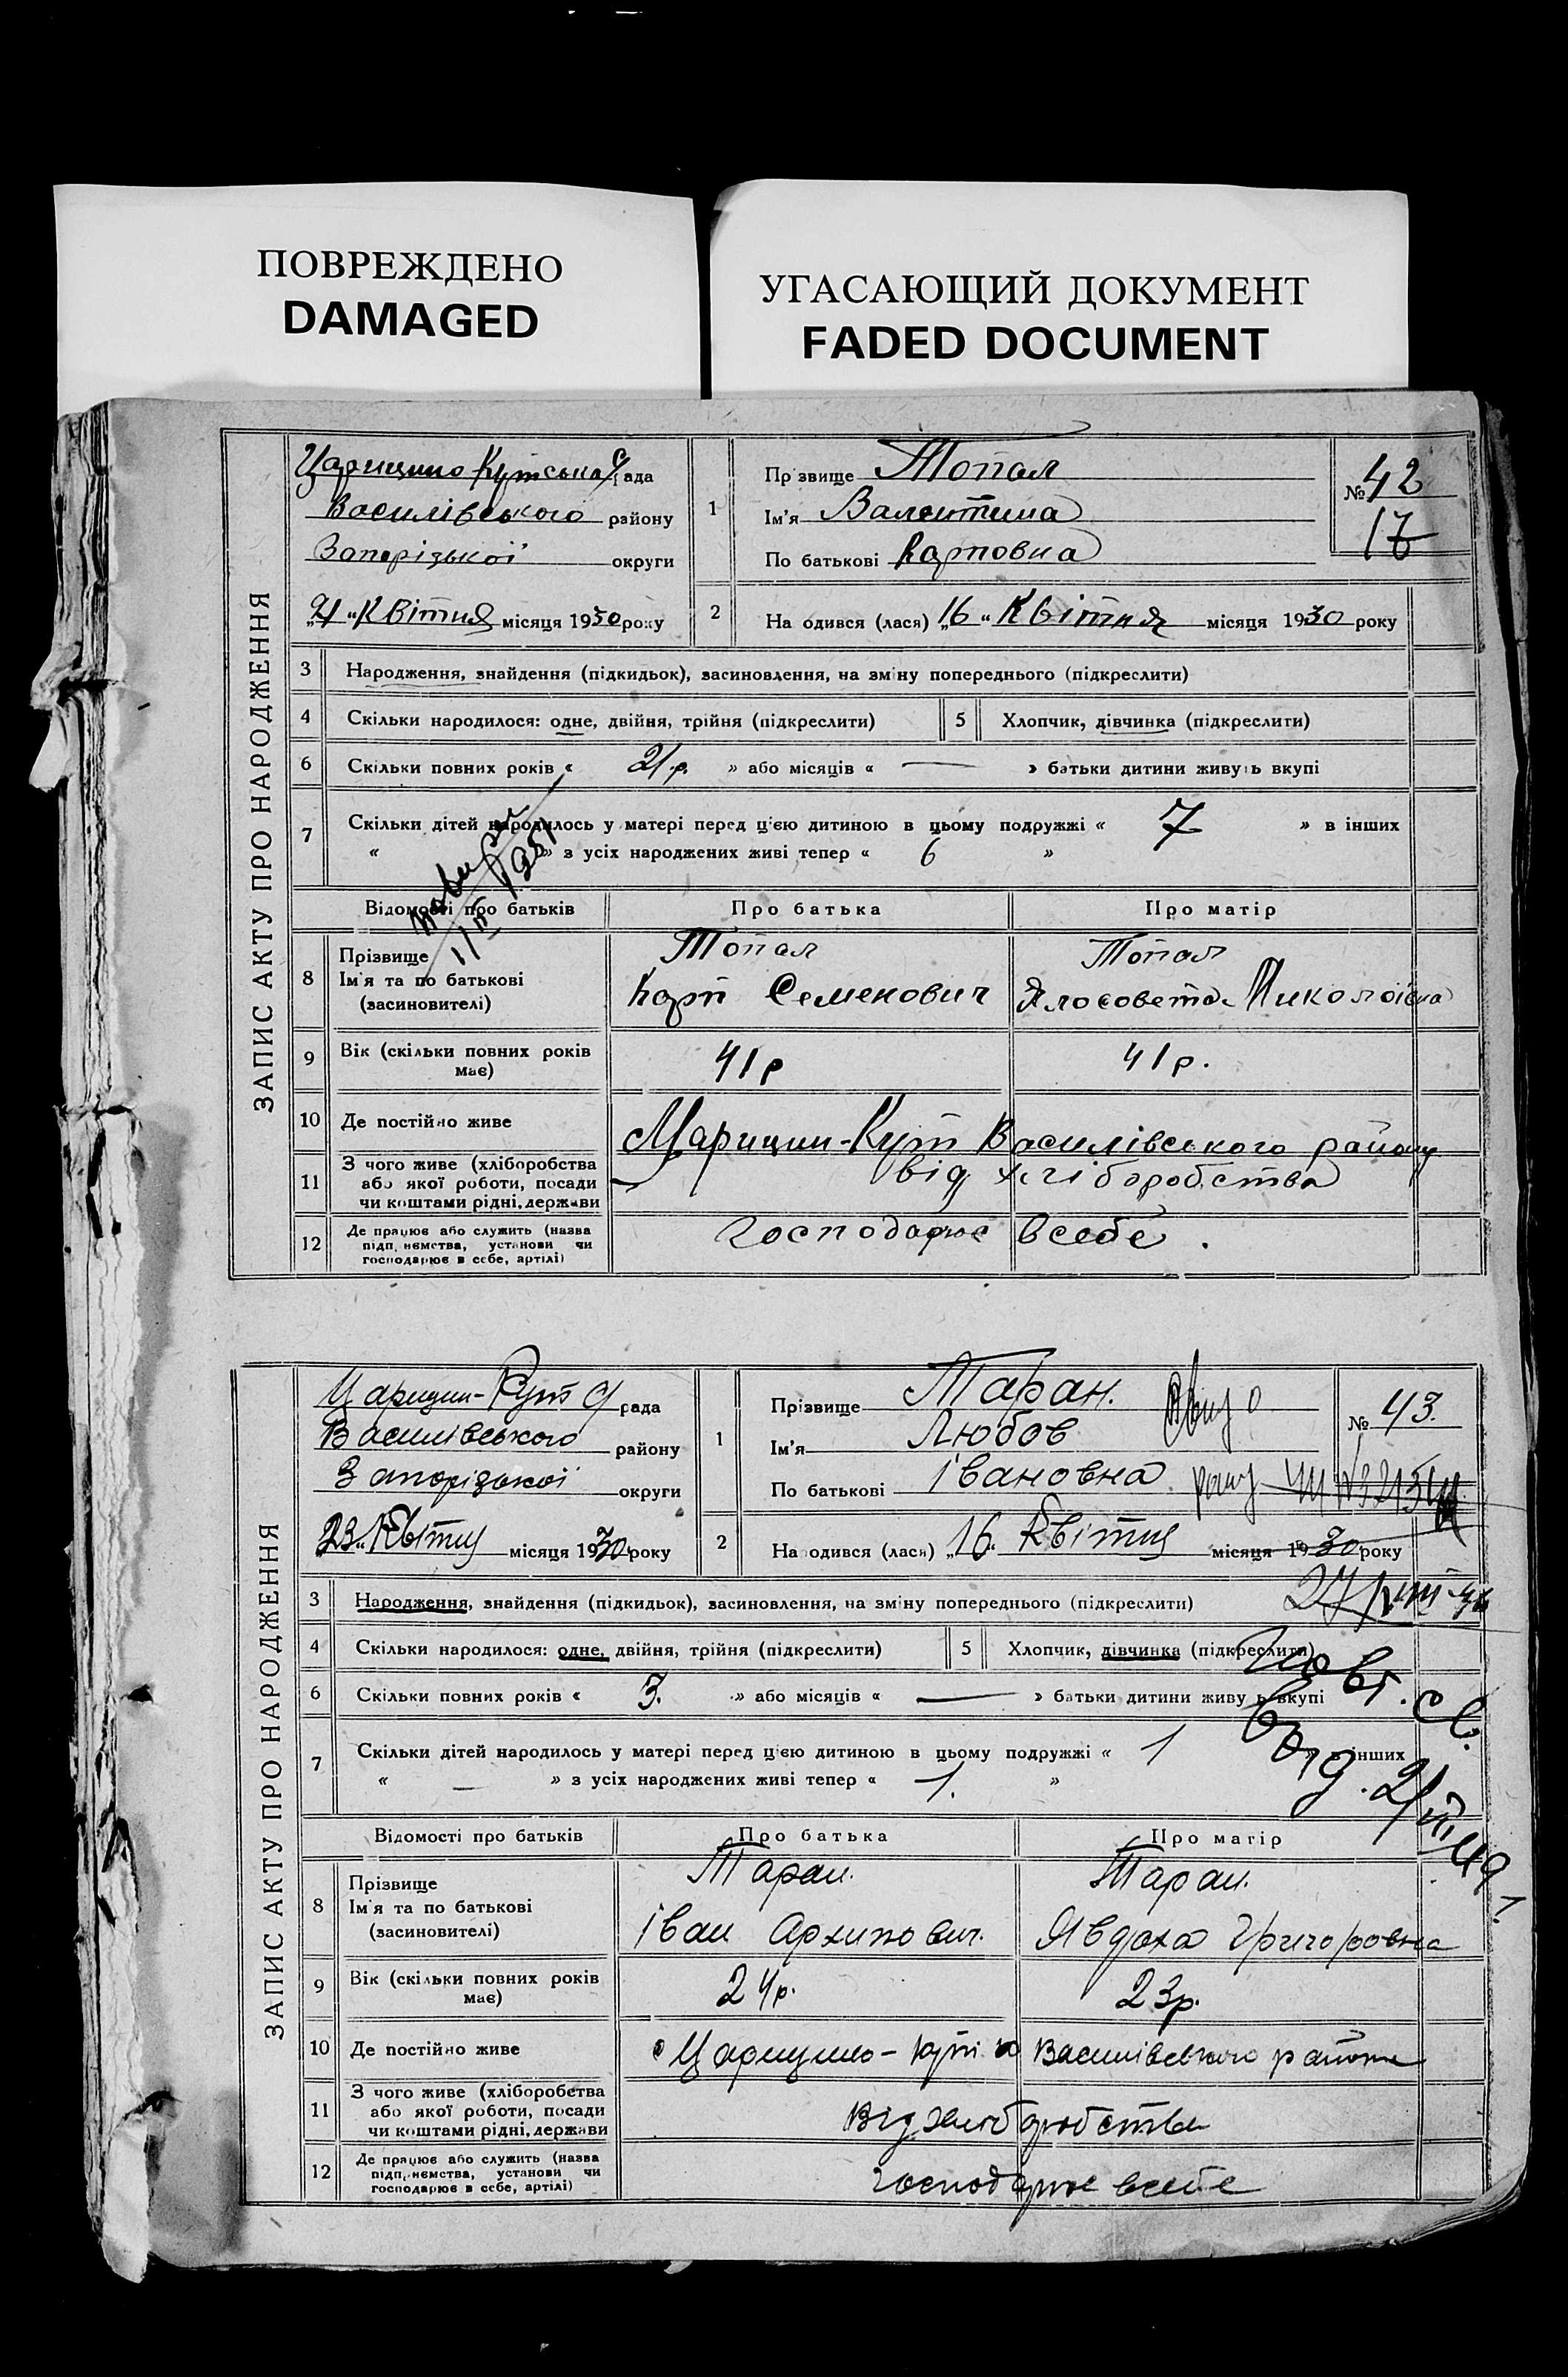 ПОВРЕЖДЕНО
DAMAGED
УГАСАЮЩИЙ ДОКУМЕНТ
FADED DOCUMENT
ЗАПИС АКТУ ПРО НАРОДЖЕННЯ
Царицино Кутська с/рада
Василівського району
Запорізької округи
„21“ Квітня місяця 1930 року
1
Прізвище Топал
Ім'я Валентина
По батькові Карповна
№ 42
17
2
На одився (лася) „16“ Квітня місяця 1930 року
3 Народження, знайдення (підкидьок), засиновлення, на зміну попереднього (підкреслити)
4 Скільки народилося: одне, двійня, трійня (підкреслити) 5 Хлопчик, дівчинка (підкреслити)
6 Скільки повних років « 21 р. » або місяців « — » батьки дитини живуть вкупі
7 Скільки дітей народилось у матері перед цією дитиною в цьому подружжі « 7 » в інших
« » з усіх народжених живі тепер « 6 »
1951
Відомості про батьків Про батька Про матір
8 Прізвище Ім'я та по батькові (засиновителі)
Топал Топал
Карп Семенович Ялосовета Миколаївна
9 Вік (скільки повних років має) 41 р 41 р.
10 Де постійно живе Царицин-Кут Василівського району
11 З чого живе (хліборобства або якої роботи, посади чи коштами рідні, держави від хліборобства
12 Де працює або служить (назва підп, нємства, установи чи господарює в себе, артілі) Господарює в себе.
ЗАПИС АКТУ ПРО НАРОДЖЕННЯ
Царицин-Кут с/рада
Василівського району
Запорізької округи
„23“ Квітня місяця 1930 року
1
Прізвище Таран.
Ім'я Любов
По батькові Івановна
№ 43.
2
На одився (лася) „16“ Квітня місяця 1930 року
3 Народження, знайдення (підкидьок), засиновлення, на зміну попереднього (підкреслити)
4 Скільки народилося: одне, двійня, трійня (підкреслити) 5 Хлопчик, дівчинка (підкреслити)
6 Скільки повних років « 3. » або місяців « — » батьки дитини живу ь вкупі
7 Скільки дітей народилось у матері перед цією дитиною в цьому подружжі « 1 » в інших
« — » з усіх народжених живі тепер « 1. »
Відомості про батьків Про батька Про матір
8 Прізвище Ім'я та по батькові (засиновителі)
Таран. Таран.
Іван Архипович. Явдоха Григоровна
9 Вік (скільки повних років має) 24 р. 23 р.
10 Де постійно живе Царицино-Кут Василівського району
11 З чого живе (хліборобства або якої роботи, посади чи коштами рідні, держави Від хліборобства
12 Де працює або служить (назва підп, нємства, установи чи господарює в себе, артілі) господарює в себе